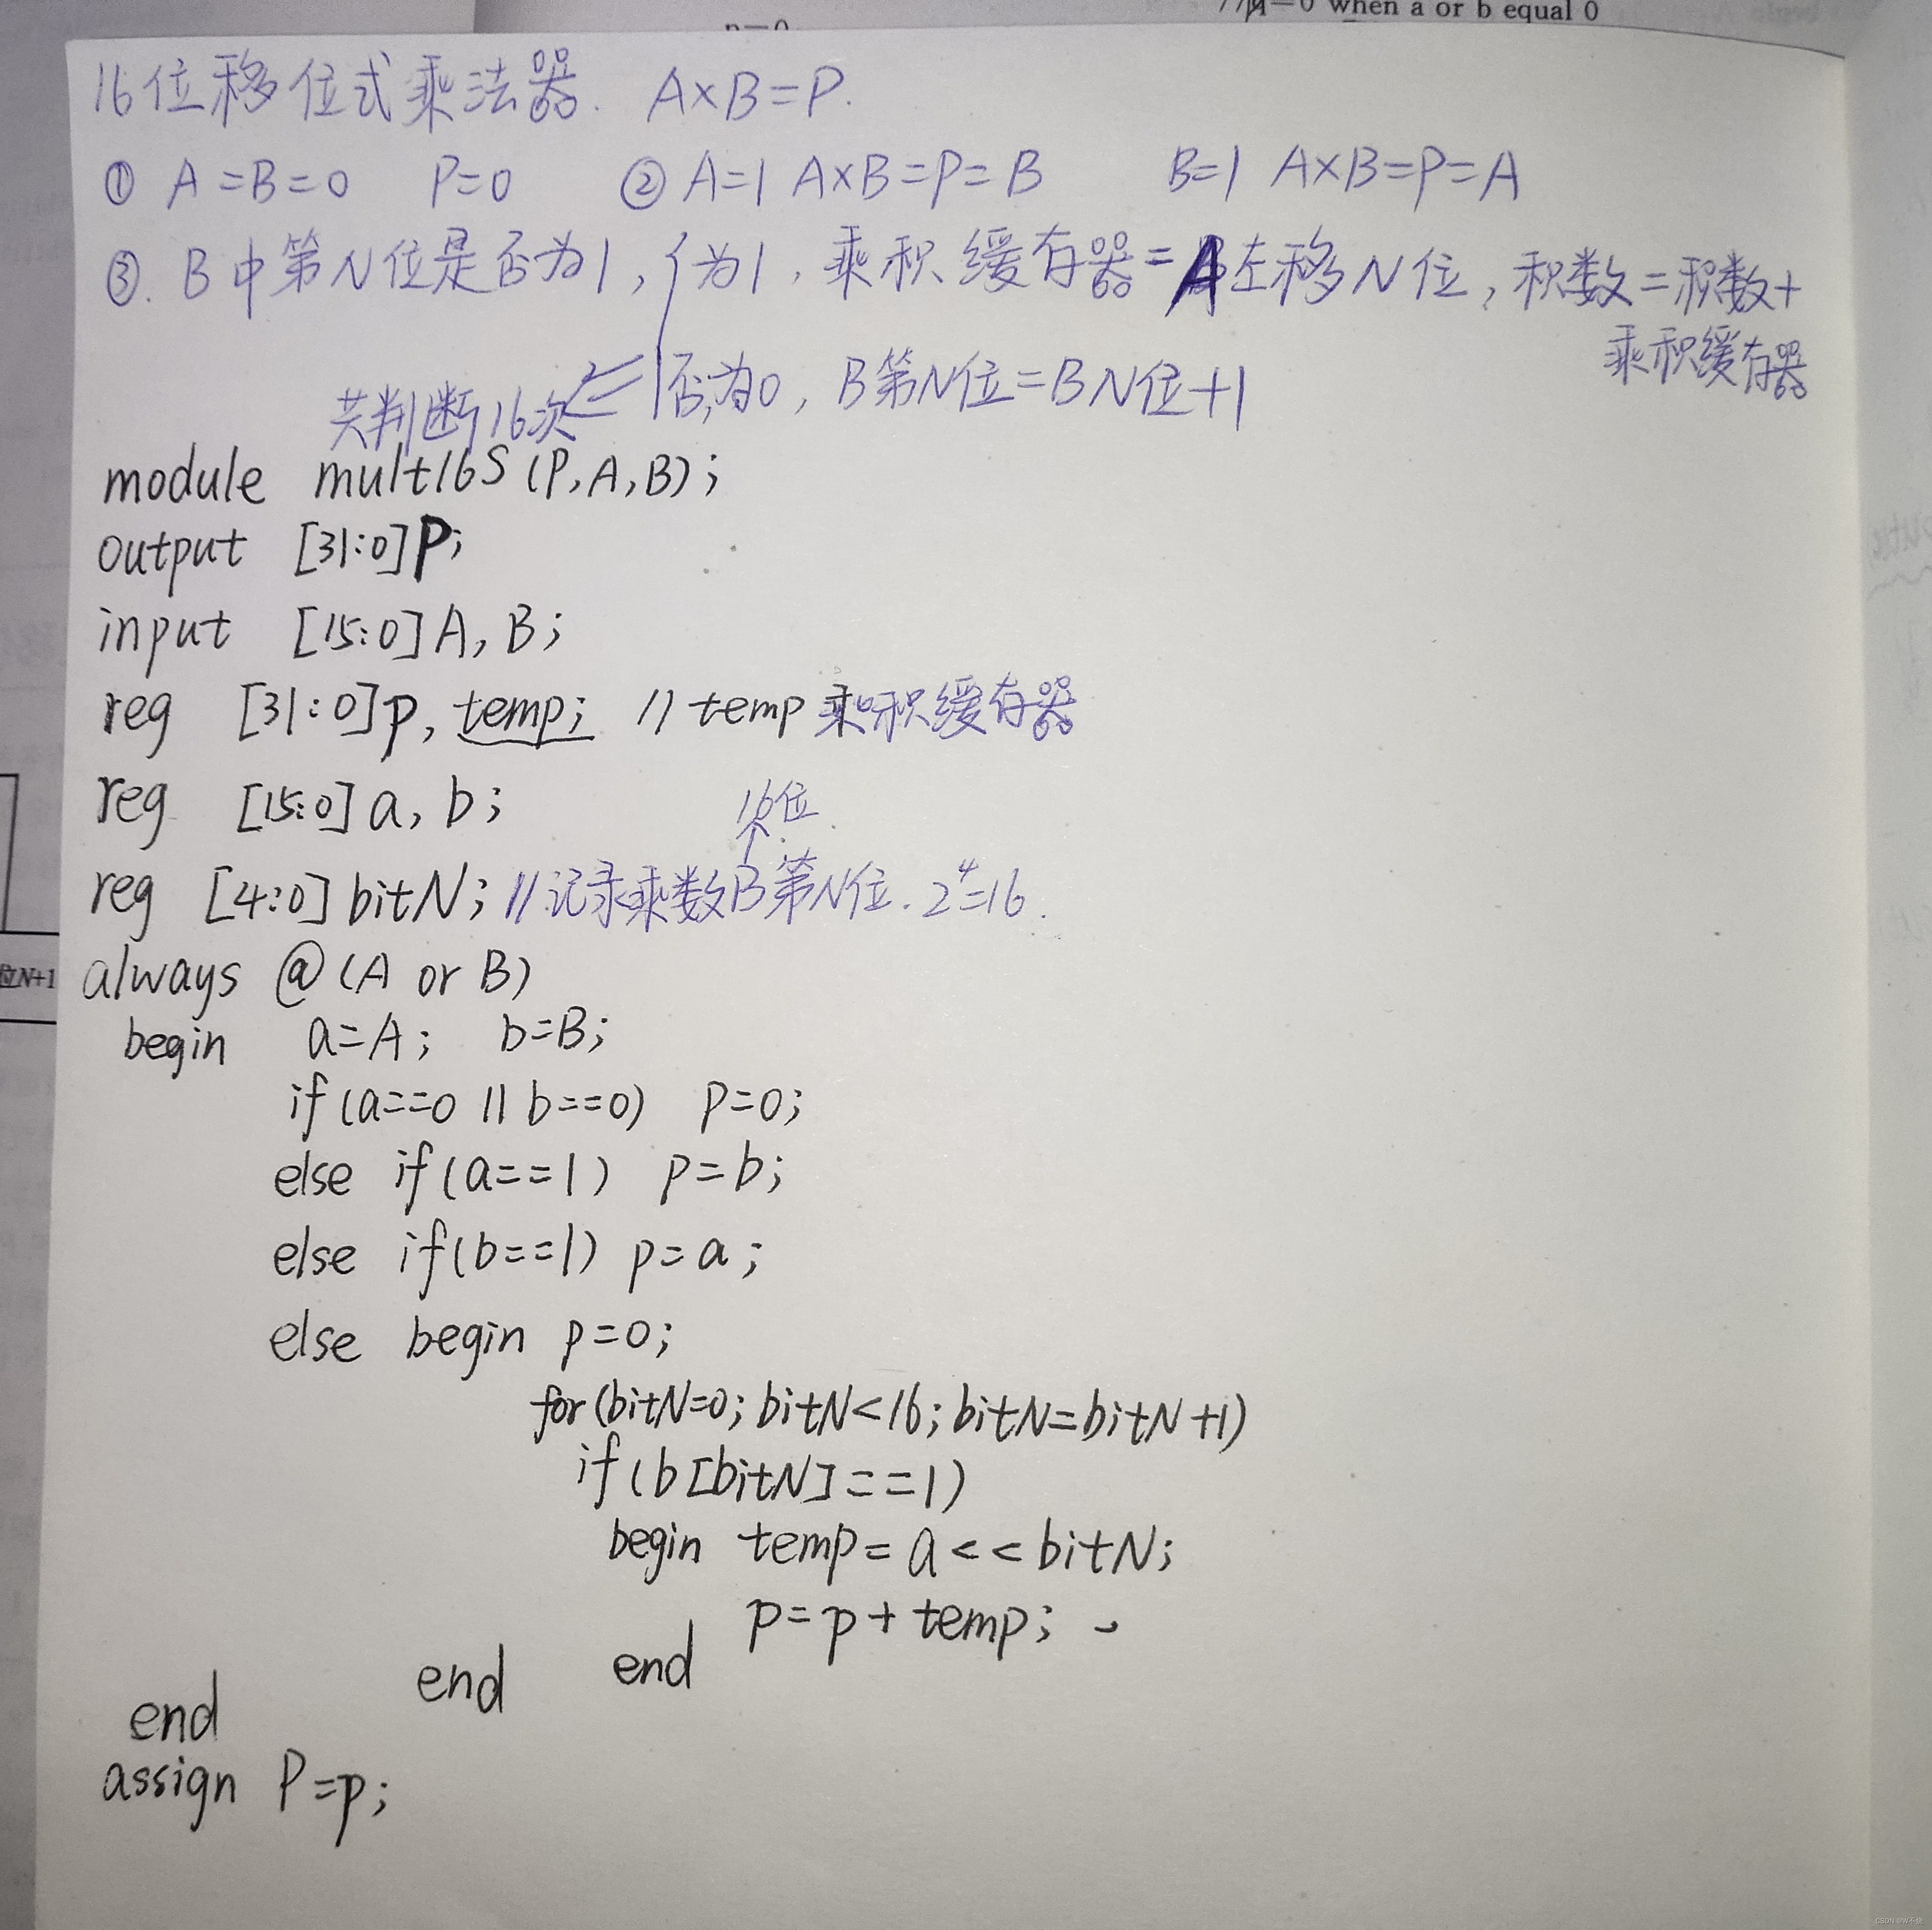 when a or b equal 0
16位移位式乘法器. A×B=P.
① A=B=0 P=0 ② A=1 A×B=P=B B=1 A×B=P=A
③. B中第N位是否为1, 为1, 乘积缓存器=A左移N位, 积数=积数+
乘积缓存器
否,为0, B第N位=BN位+1
共判断16次
module mult16S (P,A,B);
output [31:0]P;
input [15:0]A, B;
reg [31:0]p, temp; // temp 乘积缓存器
reg [15:0]a, b;
16位
reg [4:0] bitN; //记录乘数B第N位. 2^4=16.
位N+1
always @ (A or B)
begin a=A; b=B;
if (a==0 || b==0) p=0;
else if (a==1) p=b;
else if(b==1) p=a;
else begin p=0;
for (bitN=0; bitN<16; bitN=bitN+1)
if (b[bitN]==1)
begin temp=a<<bitN;
p=p+temp;
end end
end
assign P=p;